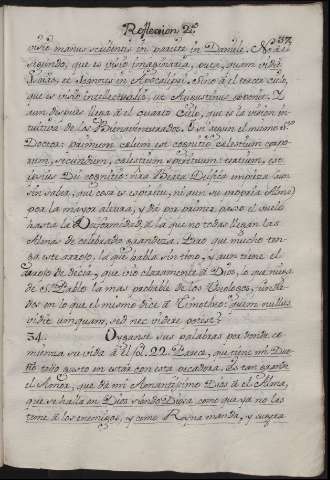 Reflexion 2ª
57.
visio manus scribentis in pariete in Daniele. No à el
segundo, que es visio imaginaria, puta, quam vidit
Isaias, et Joannes in Apocalipsi. Sino à el tercer cielo,
que es visio intellectualis, ut Augustinus exponit. Y
aun despues llega à el quarto Cielo, que es la vision in-
tuitiva de los Bienaventurados. O si segun el mismo Sto
Doctor: primum cælum est cognitio cælestium corpo-
rum, secundum, cælestium spirituum: tertium, est
ipsius Dei cognitio: nra Beata Dulce empieza (aun
sin saber, que cosa es espiritu, ni aun su propria Alma)
por la mayor altura, y dà por primer passo el vuelo
hasta la Deiformidad, à la que no todas llegan las
Almas de celebrada grandeza. Pero que mucho ten-
ga este arrojo, la que habla sin tino, y aun tiene el
arrojo de decir, que vio claramente à Dios, lo que niega
de S. Pablo la mas probable de los Theologos, funda-
dos en lo que el mismo dice à Timotheo: quem nullus
vidit umquam, sed nec videre potest?
34. Oyganse sus palabras por donde co-
mienza su vida à el fol. 22. Parece, que tiene mi Due-
ño todo gusto en estar con esta pecadora. Es tan grande
el Amor, que dà mi Amantissimo Dios à el Alma,
que se halla en Dios siendo Diosa como que ya no las
teme à los enemigos, y como Reyna manda, y supera